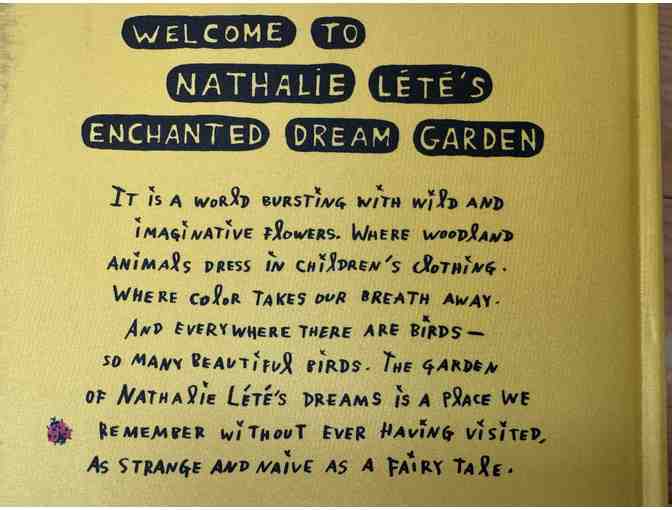 WELCOME TO
NATHALIE LÉTÉ'S
ENCHANTED DREAM GARDEN
IT IS A WORLD BURSTING WITH WILD AND
IMAGINATIVE FLOWERS. WHERE WOODLAND
ANIMALS DRESS IN CHILDREN'S CLOTHING.
WHERE COLOR TAKES OUR BREATH AWAY.
AND EVERYWHERE THERE ARE BIRDS—
SO MANY BEAUTIFUL BIRDS. THE GARDEN
OF NATHALIE LÉTÉ'S DREAMS IS A PLACE WE
REMEMBER WITHOUT EVER HAVING VISITED,
AS STRANGE AND NAIVE AS A FAIRY TALE.